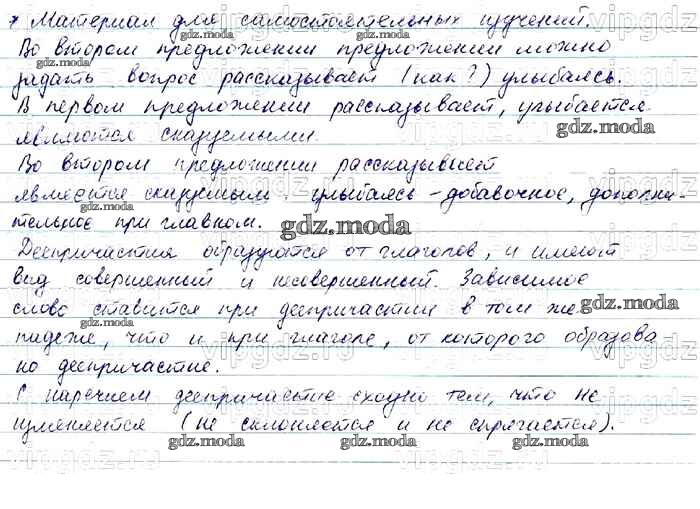 * Материал для самостоятельных изучений.
Во втором предложении предложении можно
задать вопрос рассказывает (как?) улыбаясь.
В первом предложении рассказывает, улыбается
являются сказуемыми.
Во втором предложении рассказывает
является сказуемым улыбаясь - добавочное, дополни-
тельное при главном.
Деепричастия образуются от глаголов, и имеют
вид совершенный и несовершенный. Зависимое
слово ставится при деепричастии в том же
падеже, что и при глаголе, от которого образова
но деепричастие.
С наречием деепричастие сходно тем, что не
изменяется (не склоняется и не спрягается).